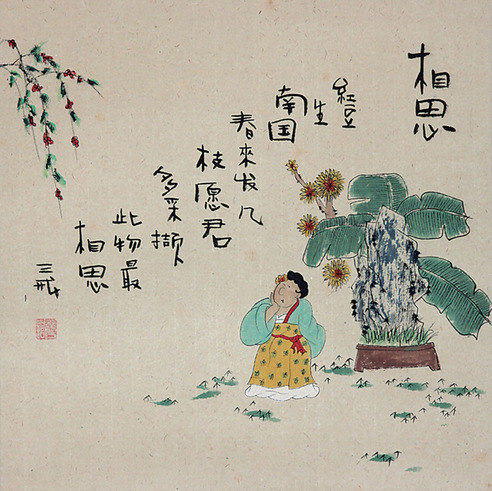 相思
紅豆
生
南国
春來发几
枝愿君
多采撷
此物最
相思